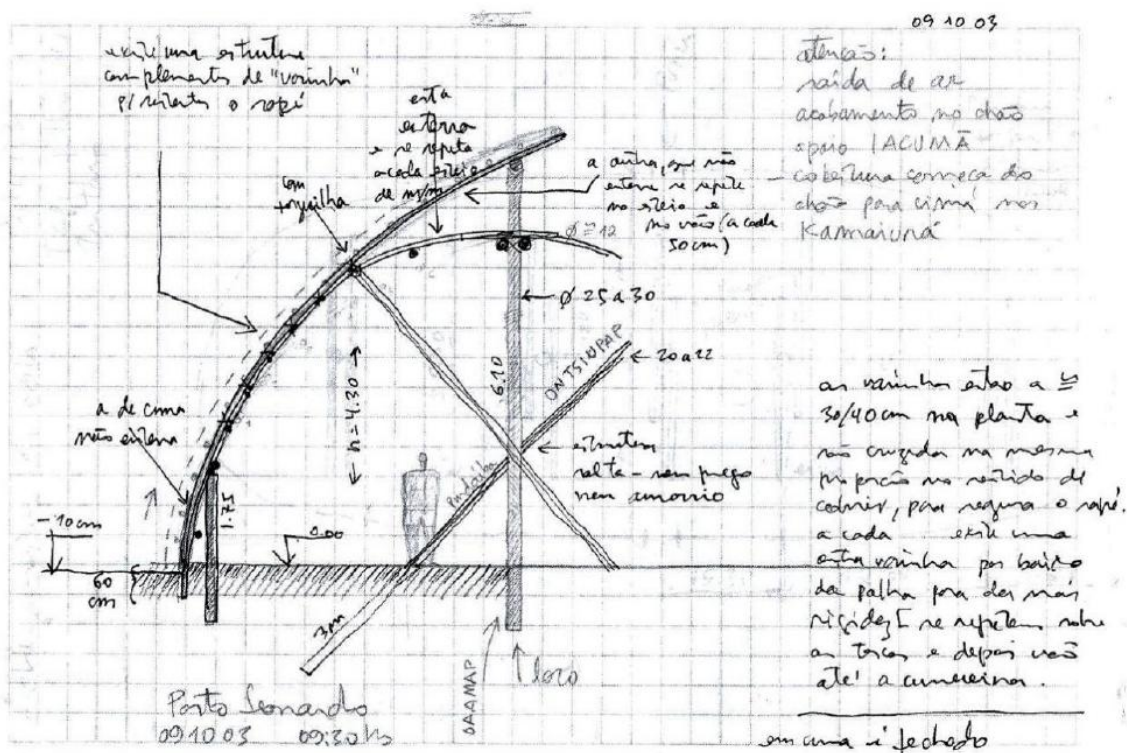 09 10 03
existe uma estrutura
complementar de "varinha"
p/ sustentar o sapé
esta
externa
e se repete
a cada esteio
com
forquilha
a outra, que não
externa se repete
no esteio e
no vão (a cada
50cm)
Ø ≅ 12
atenção:
saída de ar
acabamento no chão
apoio IACUMÃ
- cobertura começa do
chão para cima nos
Kamaiurá
Ø 25 a 30
20 a 22
ONTSIUPAP
6.10
h=4.30
a de cima
não externa
1.75
estrutura
solta - sem prego
nem amarrio
- 10 cm
0.00
60
cm
3m
as varinhas estão a ≅
30/40cm na planta e
são cruzadas na mesma
proporção no sentido de
cobrir, para segurar o sapé.
a cada existe uma
outra varinha por baixo
da palha pra dar mais
rigidez [ se repetem sobre
as terças e depois vão
até a cumeeira.
em cima é fechado
OAAMAP
Porto Leonardo
09 10 03 09:30 hs